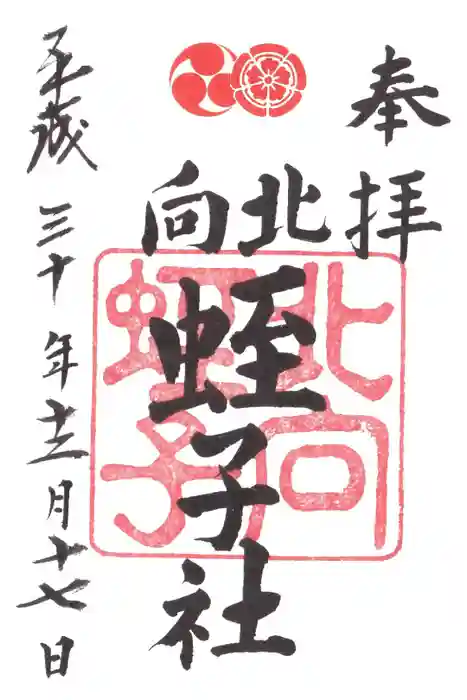 奉拝
北向
蛭子社
平成三十年十二月十七日
北向
蛭子